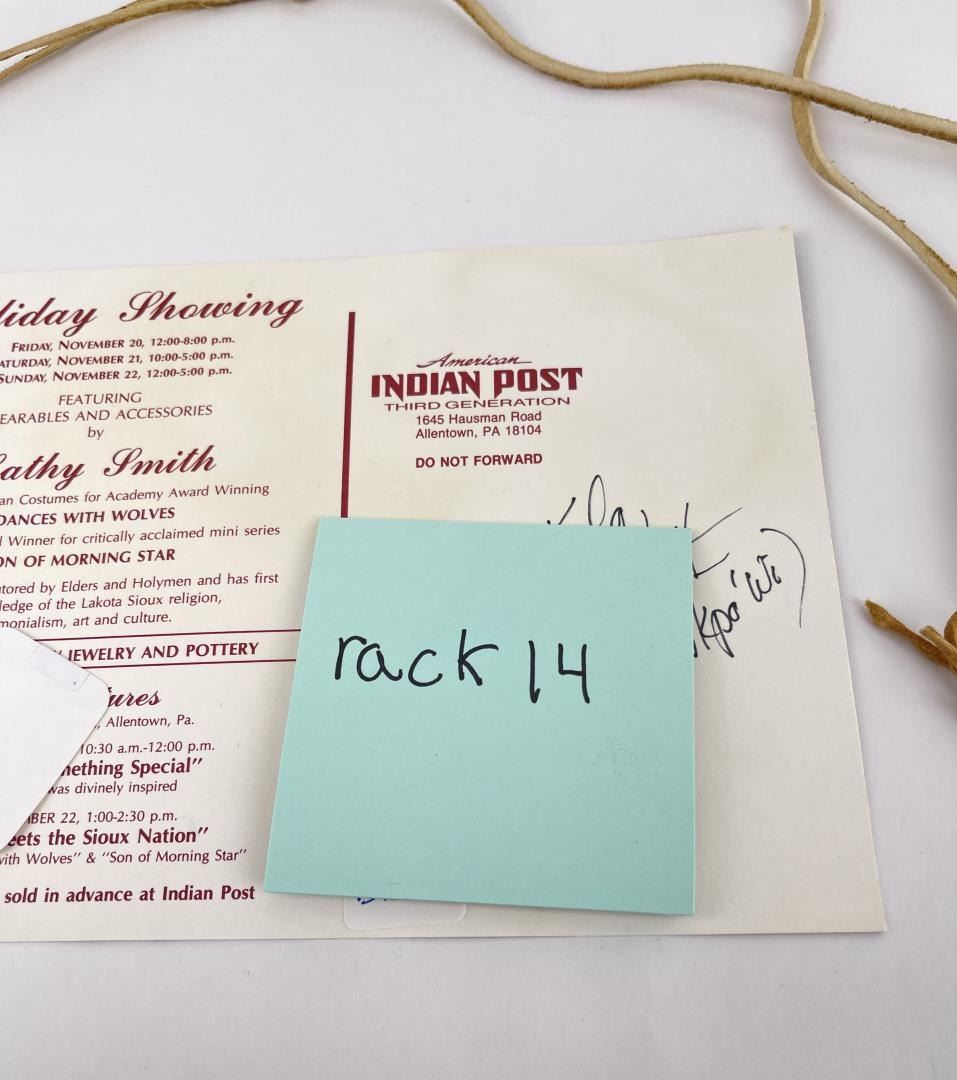 liday Showing
FRIDAY, NOVEMBER 20, 12:00-8:00 p.m.
ATURDAY, NOVEMBER 21, 10:00-5:00 p.m.
SUNDAY, NOVEMBER 22, 12:00-5:00 p.m.
FEATURING
EARABLES AND ACCESSORIES
by
athy Smith
an Costumes for Academy Award Winning
DANCES WITH WOLVES
d Winner for critically acclaimed mini series
ON OF MORNING STAR
utored by Elders and Holymen and has first
ledge of the Lakota Sioux religion,
monialism, art and culture.
JEWELRY AND POTTERY
ures
, Allentown, Pa.
10:30 a.m.-12:00 p.m.
mething Special”
was divinely inspired
BER 22, 1:00-2:30 p.m.
eets the Sioux Nation”
with Wolves” & “Son of Morning Star”
sold in advance at Indian Post
American
INDIAN POST
THIRD GENERATION
1645 Hausman Road
Allentown, PA 18104
DO NOT FORWARD
rack 14